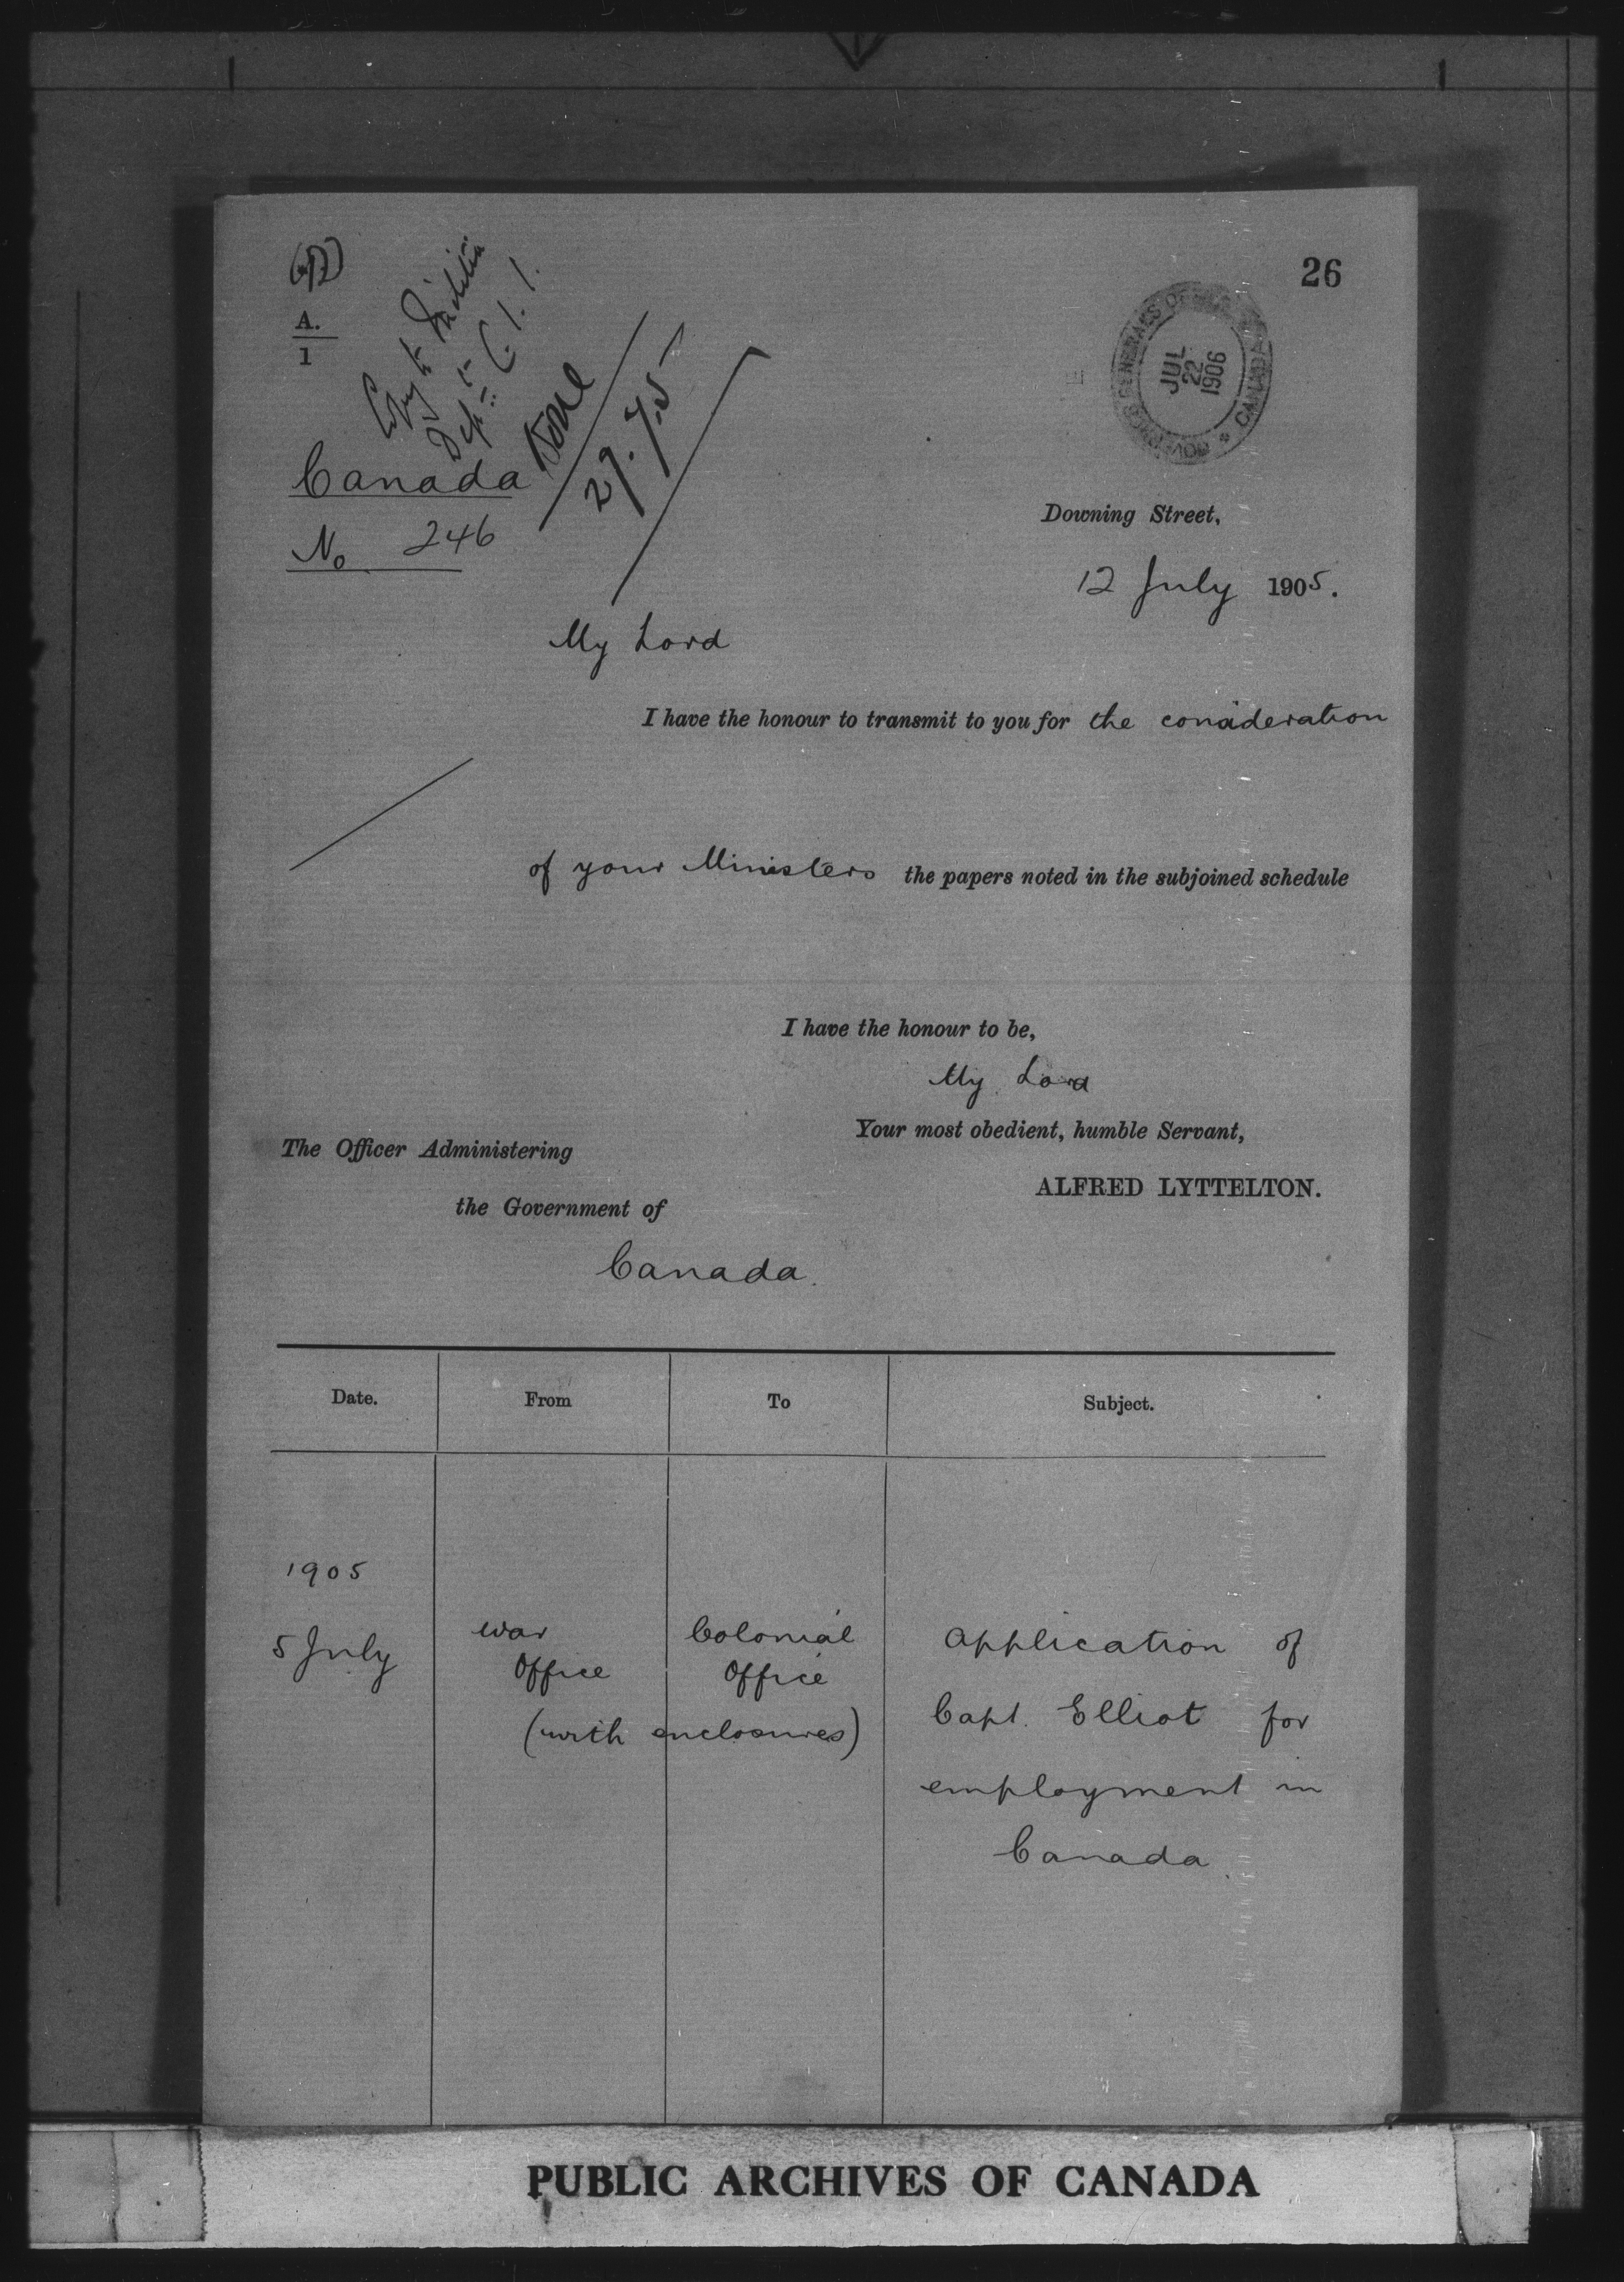 26
A.
1
Copy to Militia
Dept
Done
27.7.05
GOVERNOR GENERAL'S OFFICE
CANADA
JUL
22
1906
Canada
No 246
Downing Street,
12 July 1905.
My Lord
I have the honour to transmit to you for the consideration
of your Ministers the papers noted in the subjoined schedule
I have the honour to be,
My Lord
Your most obedient, humble Servant,
ALFRED LYTTELTON.
The Officer Administering
the Government of
Canada.
Date. From To Subject.
1905
5 July War Office Colonial Office Application of
(with enclosures) Capt. Elliot for
employment in
Canada.
PUBLIC ARCHIVES OF CANADA